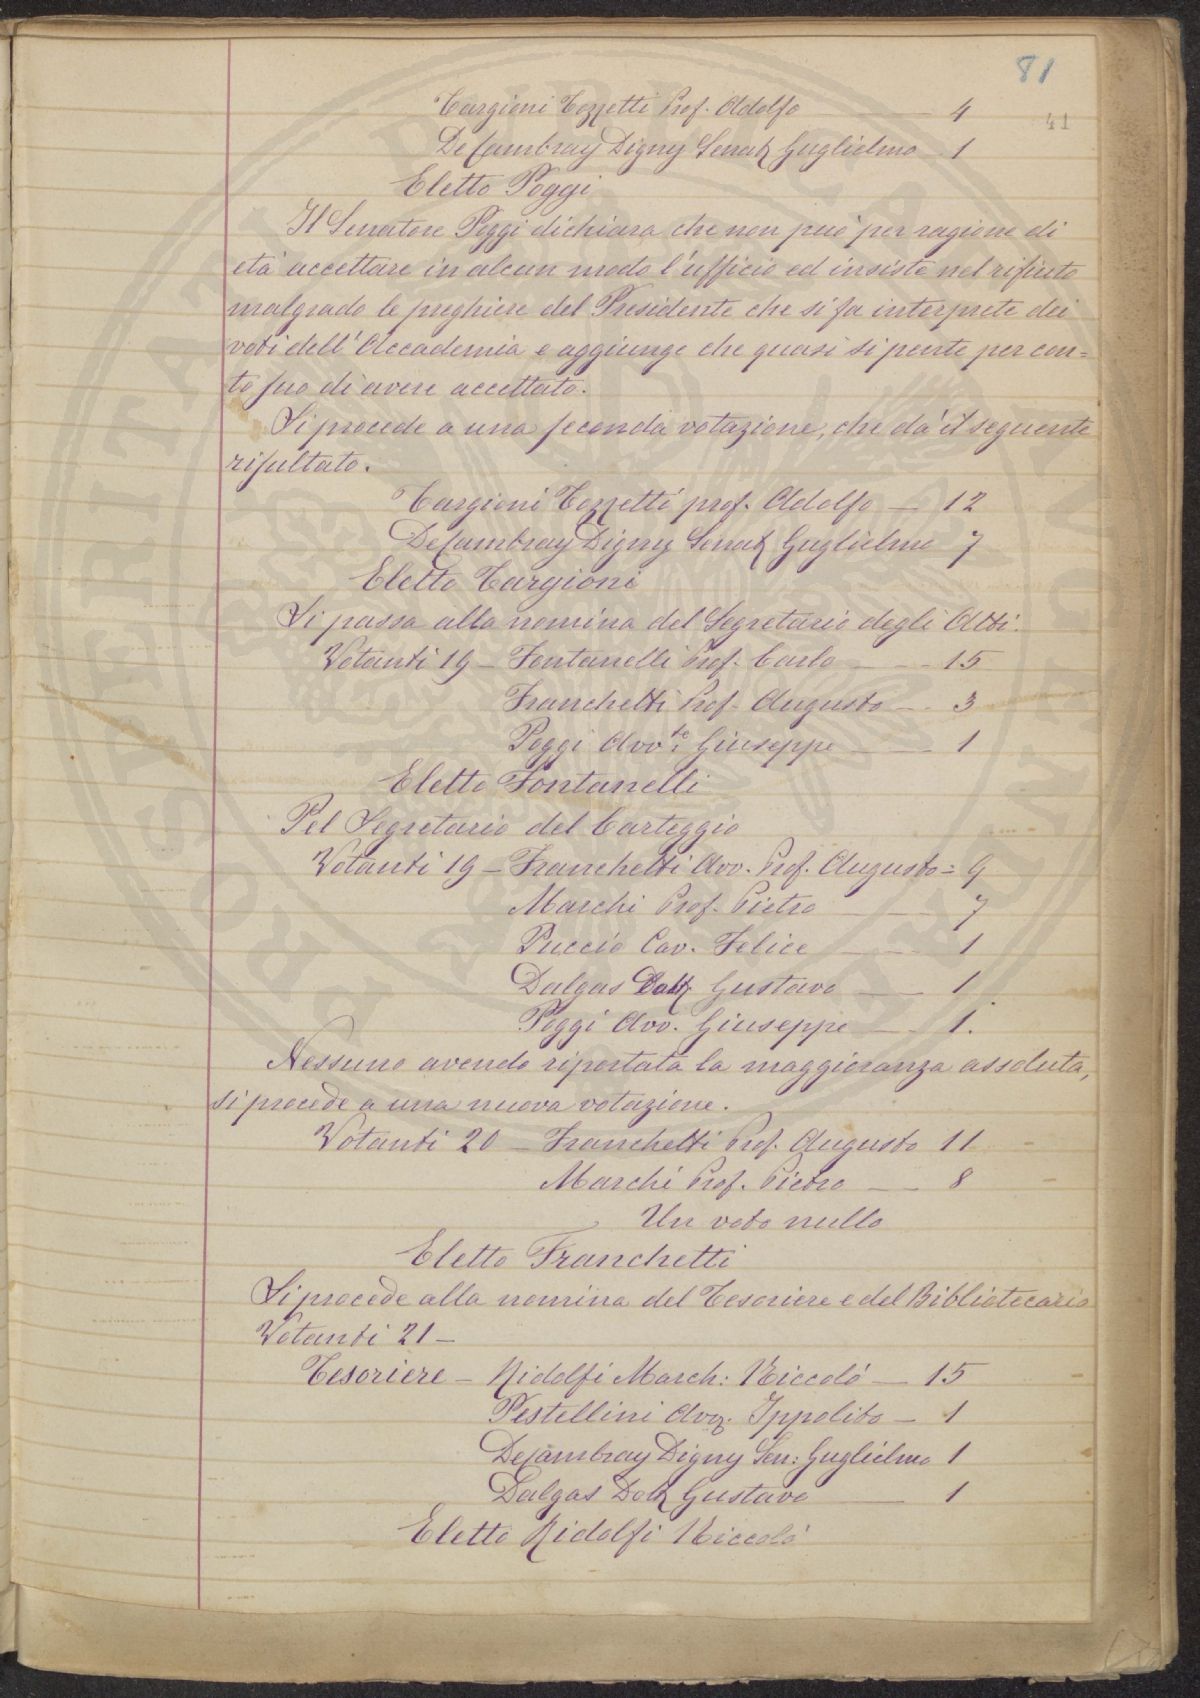 81
41
Targioni Tozzetti Prof. Adolfo — 4
De Cambray Digny Senatr Guglielmo — 1
Eletto Poggi
Il Senatore Poggi dichiara che non può per ragione di
età accettare in alcun modo l'ufficio ed insiste nel rifiuto
malgrado le preghiere del Presidente che si fa interprete dei
voti dell'Accademia e aggiunge che quasi si pente per con=
to suo di avere accettato.
Si procede a una seconda votazione, che dà il seguente
risultato.
Targioni Tozzetti prof. Adolfo — 12
De Cambray Digny Senatr Guglielmo 7
Eletto Targioni
Si passa alla nomina del Segretario degli Atti.
Votanti 19 — Fontanelli Prof. Carlo — 15
Franchetti Prof. Augusto — 3
Poggi Avv.to Giuseppe — 1
Eletto Fontanelli
Pel Segretario del Carteggio
Votanti 19 — Franchetti Avv. Prof. Augusto = 9
Marchi Prof. Pietro — 7
Puccio Cav. Felice — 1
Dalgas Dottr Gustavo — 1
Poggi Avv. Giuseppe — 1.
Nessuno avendo riportata la maggioranza assoluta,
si procede a una nuova votazione.
Votanti 20 — Franchetti Prof. Augusto 11
Marchi Prof. Pietro — 8
Un voto nullo
Eletto Franchetti
Si procede alla nomina del Tesoriere e del Bibliotecario
Votanti 21 —
Tesoriere — Ridolfi March: Niccolò — 15
Pestellini Avv. Ippolito — 1
De Cambray Digny Sen: Guglielmo 1
Dalgas Dottr Gustavo — 1
Eletto Ridolfi Niccolò